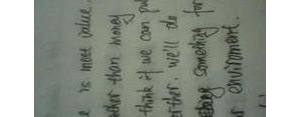 is most value.
rther than money
think if we can pu
rther. we'll do
something for
r enviroment.